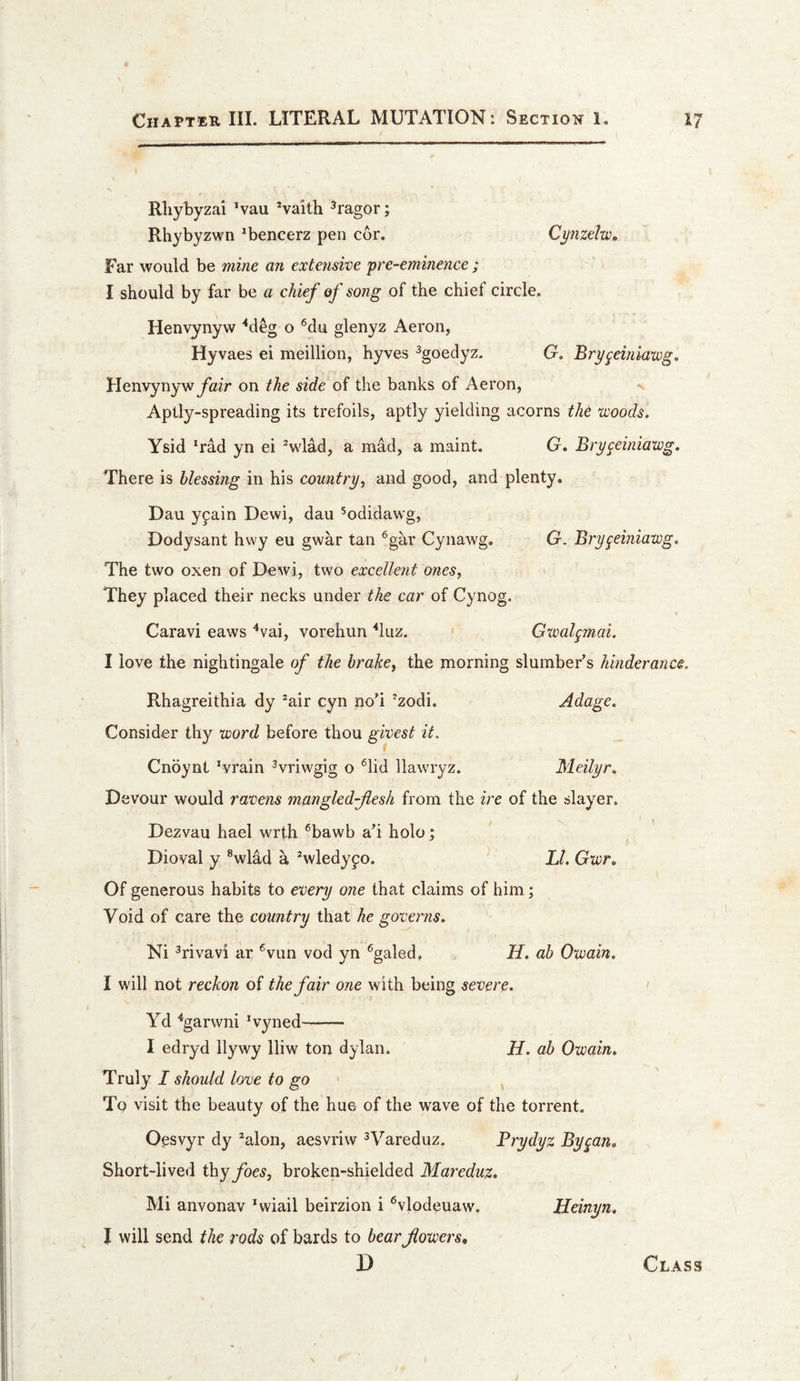 Chapter III. LITERAL MUTATION: Section 1. 17
Rhybyzai ¹vau ²vaith ³ragor;
Rhybyzwn ¹bencerz pen côr. Cynzelw.
Far would be mine an extensive pre-eminence;
I should by far be a chief of song of the chief circle.
Henvynyw ⁴dêg o ⁶du glenyz Aeron,
Hyvaes ei meillion, hyves ³goedyz. G. Bryçeiniawg.
Henvynyw fair on the side of the banks of Aeron,
Aptly-spreading its trefoils, aptly yielding acorns the woods.
Ysid ¹râd yn ei ²wlâd, a mâd, a maint. G. Bryçeiniawg.
There is blessing in his country, and good, and plenty.
Dau yçain Dewi, dau ⁵odidawg,
Dodysant hwy eu gwàr tan ⁶gàr Cynawg. G. Bryçeiniawg.
The two oxen of Dewi, two excellent ones,
They placed their necks under the car of Cynog.
Caravi eaws ⁴vai, vorehun ⁴luz. Gwalçmai.
I love the nightingale of the brake, the morning slumber's hinderance.
Rhagreithia dy ²air cyn no'i ⁷zodi. Adage.
Consider thy word before thou givest it.
Cnöynt ¹vrain ³vriwgig o ⁶lid llawryz. Meilyr.
Devour would ravens mangled-flesh from the ire of the slayer.
Dezvau hael wrth ⁶bawb a'i holo;
Dioval y ⁸wlâd à ²wledyço. Ll. Gwr.
Of generous habits to every one that claims of him;
Void of care the country that he governs.
Ni ³rivavi ar ⁶vun vod yn ⁶galed, H. ab Owain.
I will not reckon of the fair one with being severe.
Yd ⁴garwni ¹vyned——
I edryd llywy lliw ton dylan. H. ab Owain.
Truly I should love to go
To visit the beauty of the hue of the wave of the torrent.
Oesvyr dy ²alon, aesvriw ³Vareduz. Prydyz Byçan.
Short-lived thy foes, broken-shielded Mareduz.
Mi anvonav ¹wiail beirzion i ⁶vlodeuaw. Heinyn.
I will send the rods of bards to bear flowers.
D Class